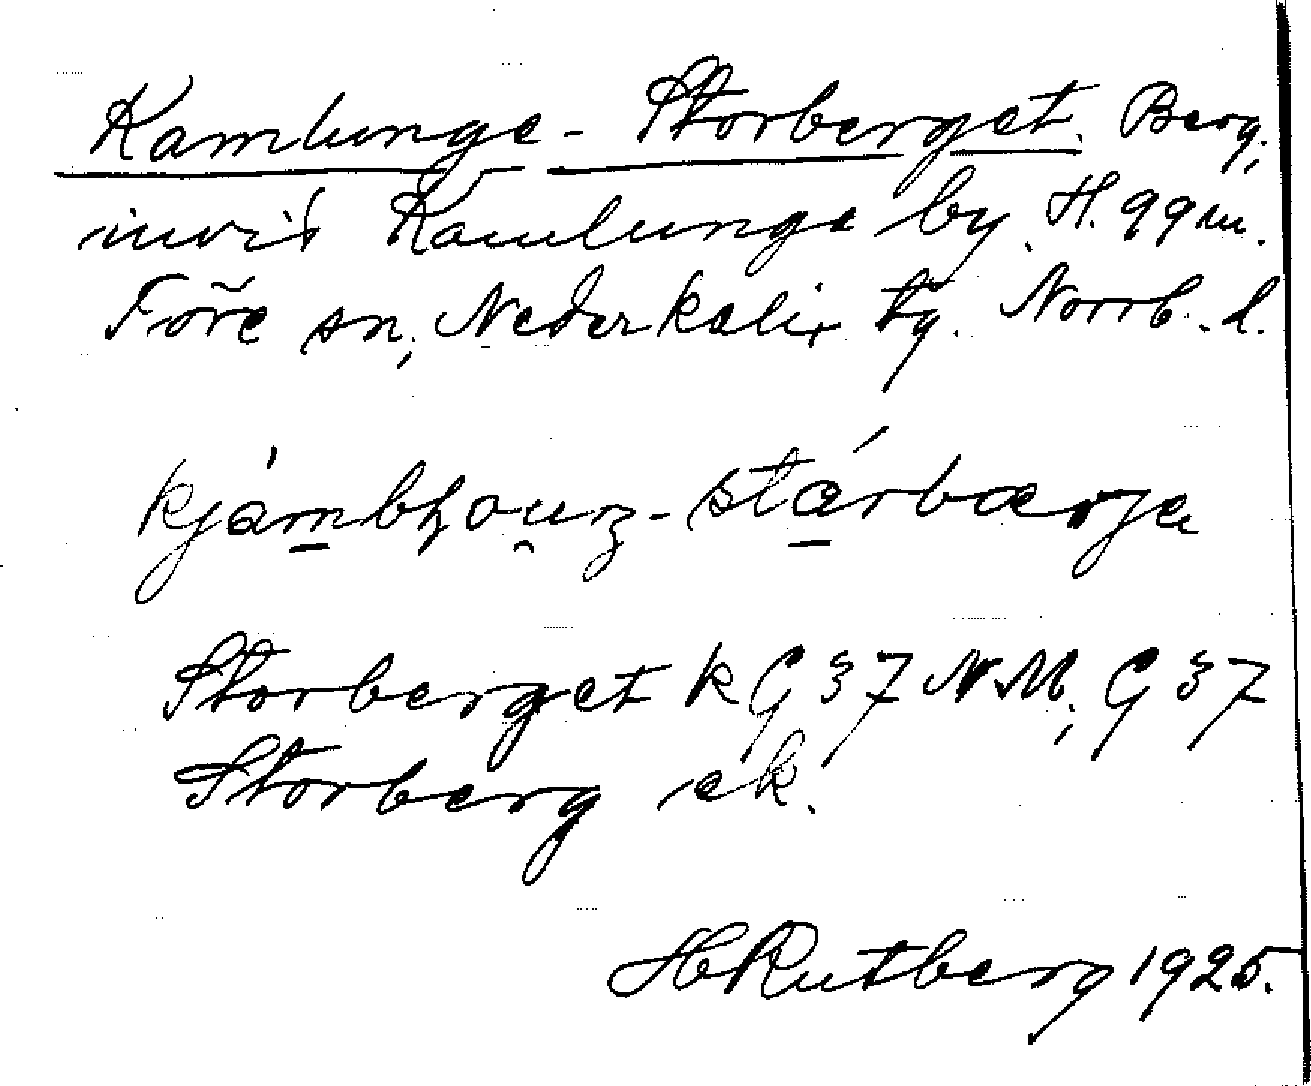 Kamlunge-Storberget. Berg,
invid Kamlunge by. H. 99 m.
Töre sn, Nederkalix tg. Norrb. l.
kjámbłouŋ-stárbærje
Storberget k G 37 NM, G 37
Storberg ek.
H Rutberg 1925.